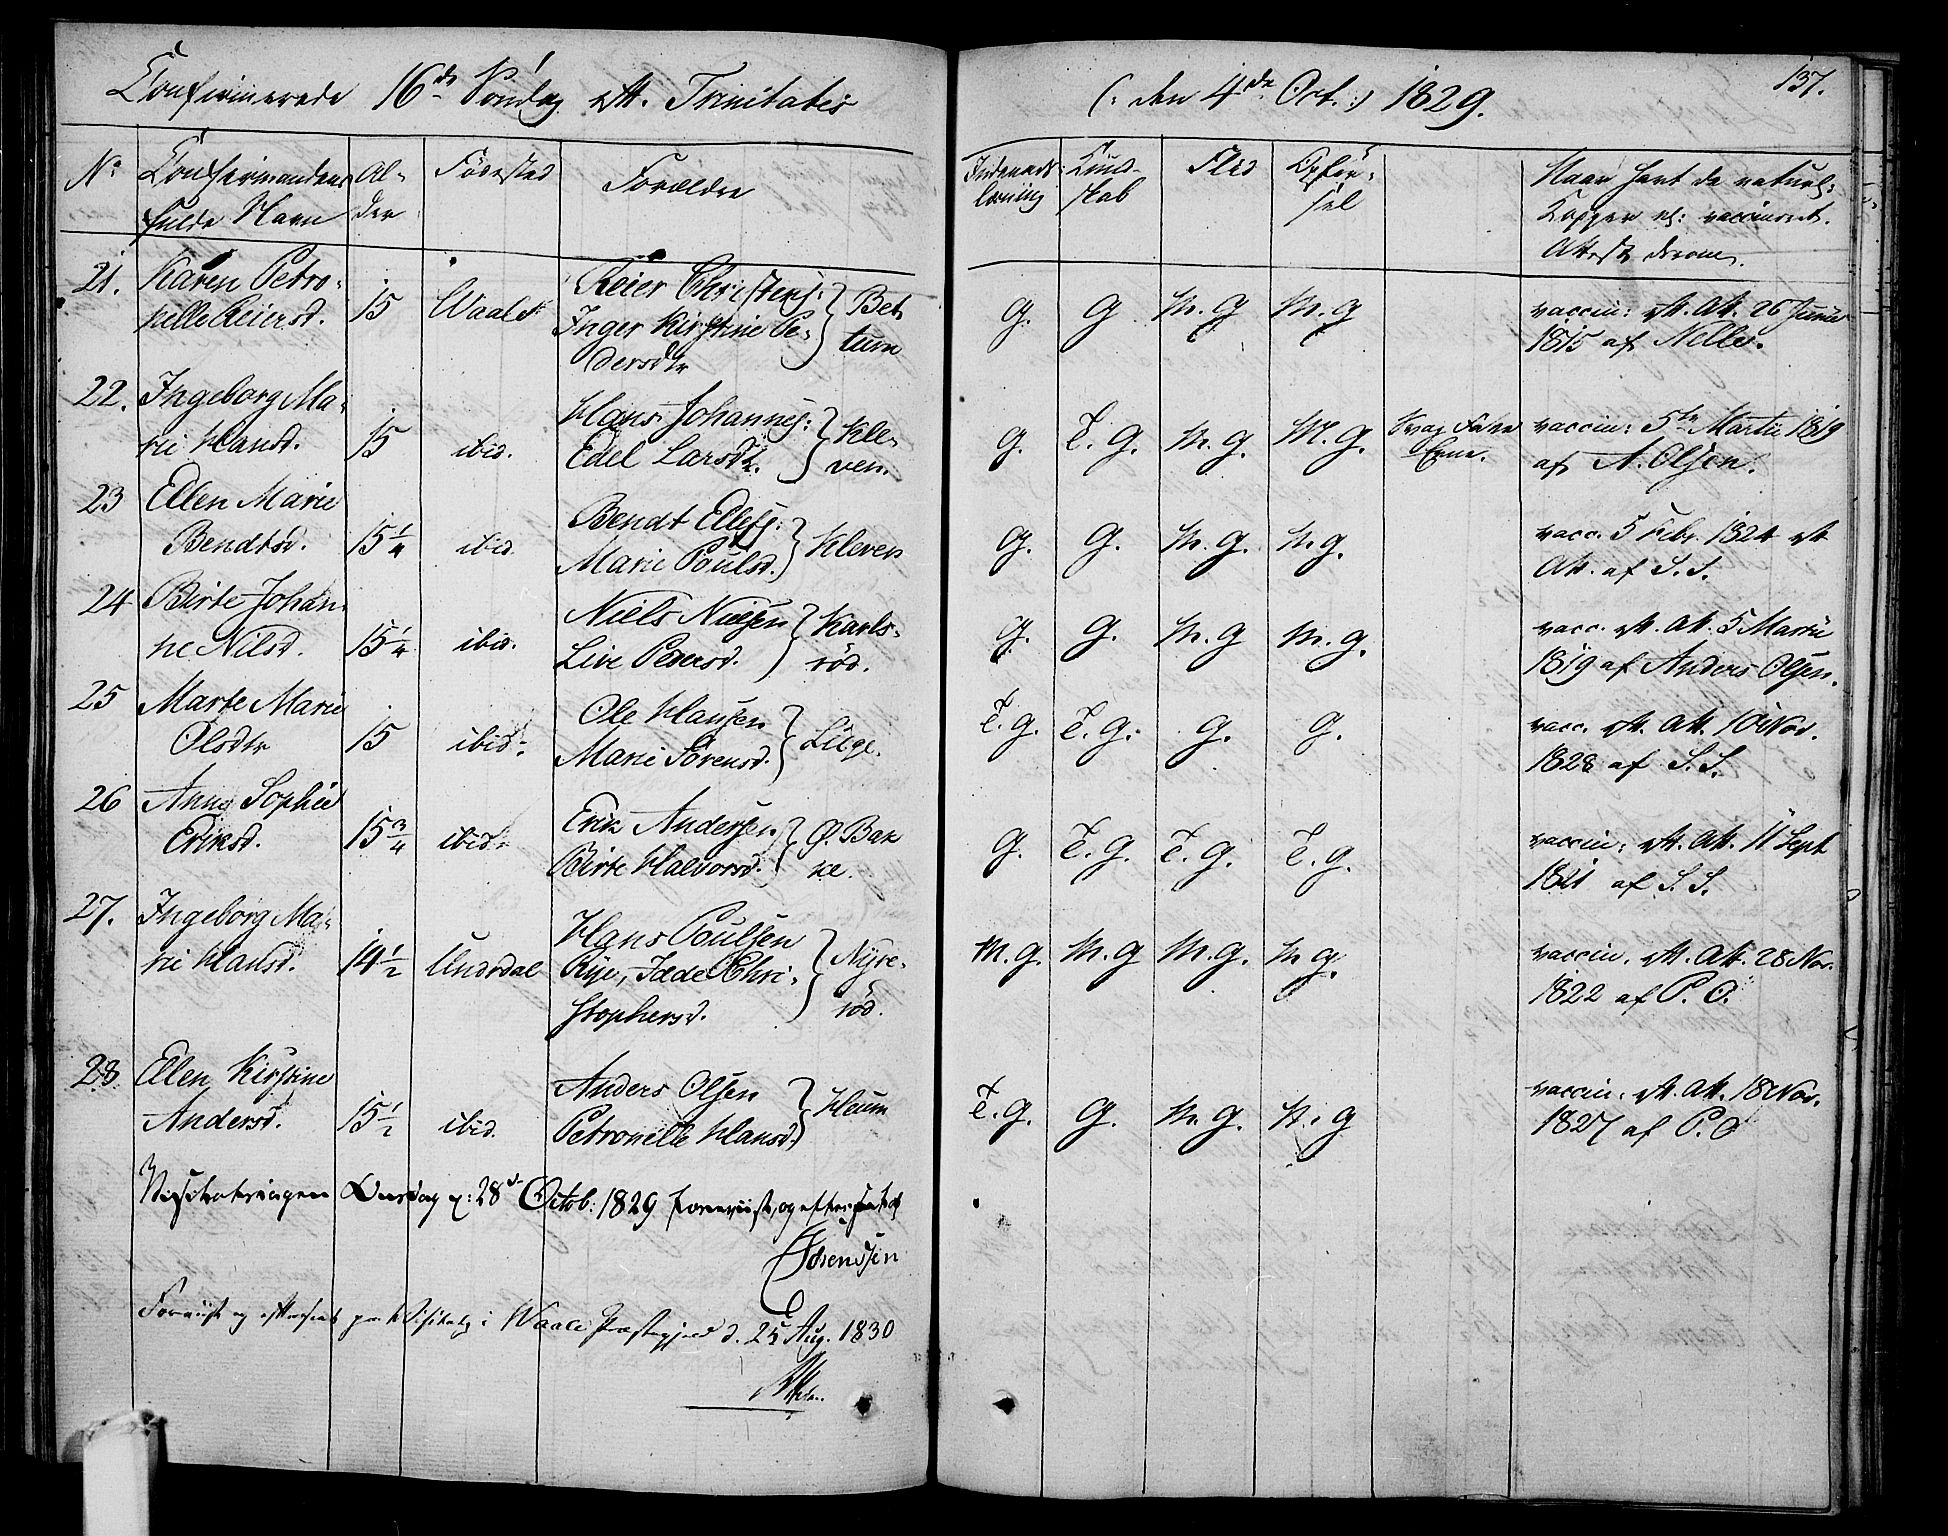 Confirmerede 16de Søndag eft. Trinitatis (: den 4de Oct. :) 1829.
137.
No Confirmandens fulde Navn Alder Fødested Forældre Indenads: læsning Kundskab Flid Opførsel Naar havt de naturl: Kopper el: vaccineret. Attest derom.
21. Karen Petronelle Reiersd. 15 Waale Reier Christens: Inger Kirstine Pedersdtr } Bettum g. g m. g m. g vaccin: eft. Att. 26 Junii 1815 af Nelle.
22. Ingeborg Marie Hansd. 15 ibid. Hans Johannes: Edel Larsdtr. } Kleven. g. T. g. m. g. M. g. Svag Fatte Evne. vaccin: 5te Martii 1819 af A. Olsen.
23 Ellen Marie Bendtsd. 15 1/4 ibid. Bendt Ellefs: Marie Poulsd. } Kleven g. g. m. g. m. g. vacc. 5 Febr. 1824 eft Att. af S. S.
24 Birte Johanne Nilsd. 15 1/4 ibid. Niels Nielsen Live Pedersd. } Karlsrød. g. g. m. g m. g. vacc. eft. Att. 5 Martii 1819 af Anders Olsen.
25 Marte Marie Olsdtr 15 ibid. Ole Hansen Marie Sørensd. } T. g. T. g. g. g. vacc. eft. Att. 10 Nov. 1828 af S. S.
26 Anne Sophie Eriksd. 15 3/4 ibid. Erik Andersen Birte Halvorsd. } Ø. Bakke. g. T. g. T. g. T. g. vaccin: eft. Att. 11 Sept 1821 af S. S.
27. Ingeborg Marie Hansd. 14 1/2 Undrdal Hans Poulsen Rye, Jæde Christophersd. } Nyrerød. m. g. m. g m. g. m g. vaccin. eft. Att. 28 Nov. 1822 af P. O.
28. Ellen Kirstine Andersd. 15 1/2 ibid. Anders Olsen Petronelle Hansd. } Kleum T. g. g. m. g. m. g vaccin. eft. Att. 18 Nov. 1827 af P. O
Onsdag d: 28d Octob: 1829 foreviist, og efterseet
Sørenssen
Foreviist og efterseet paa Visitatz i Waale Præstegjeld d. 25 Aug. 1830